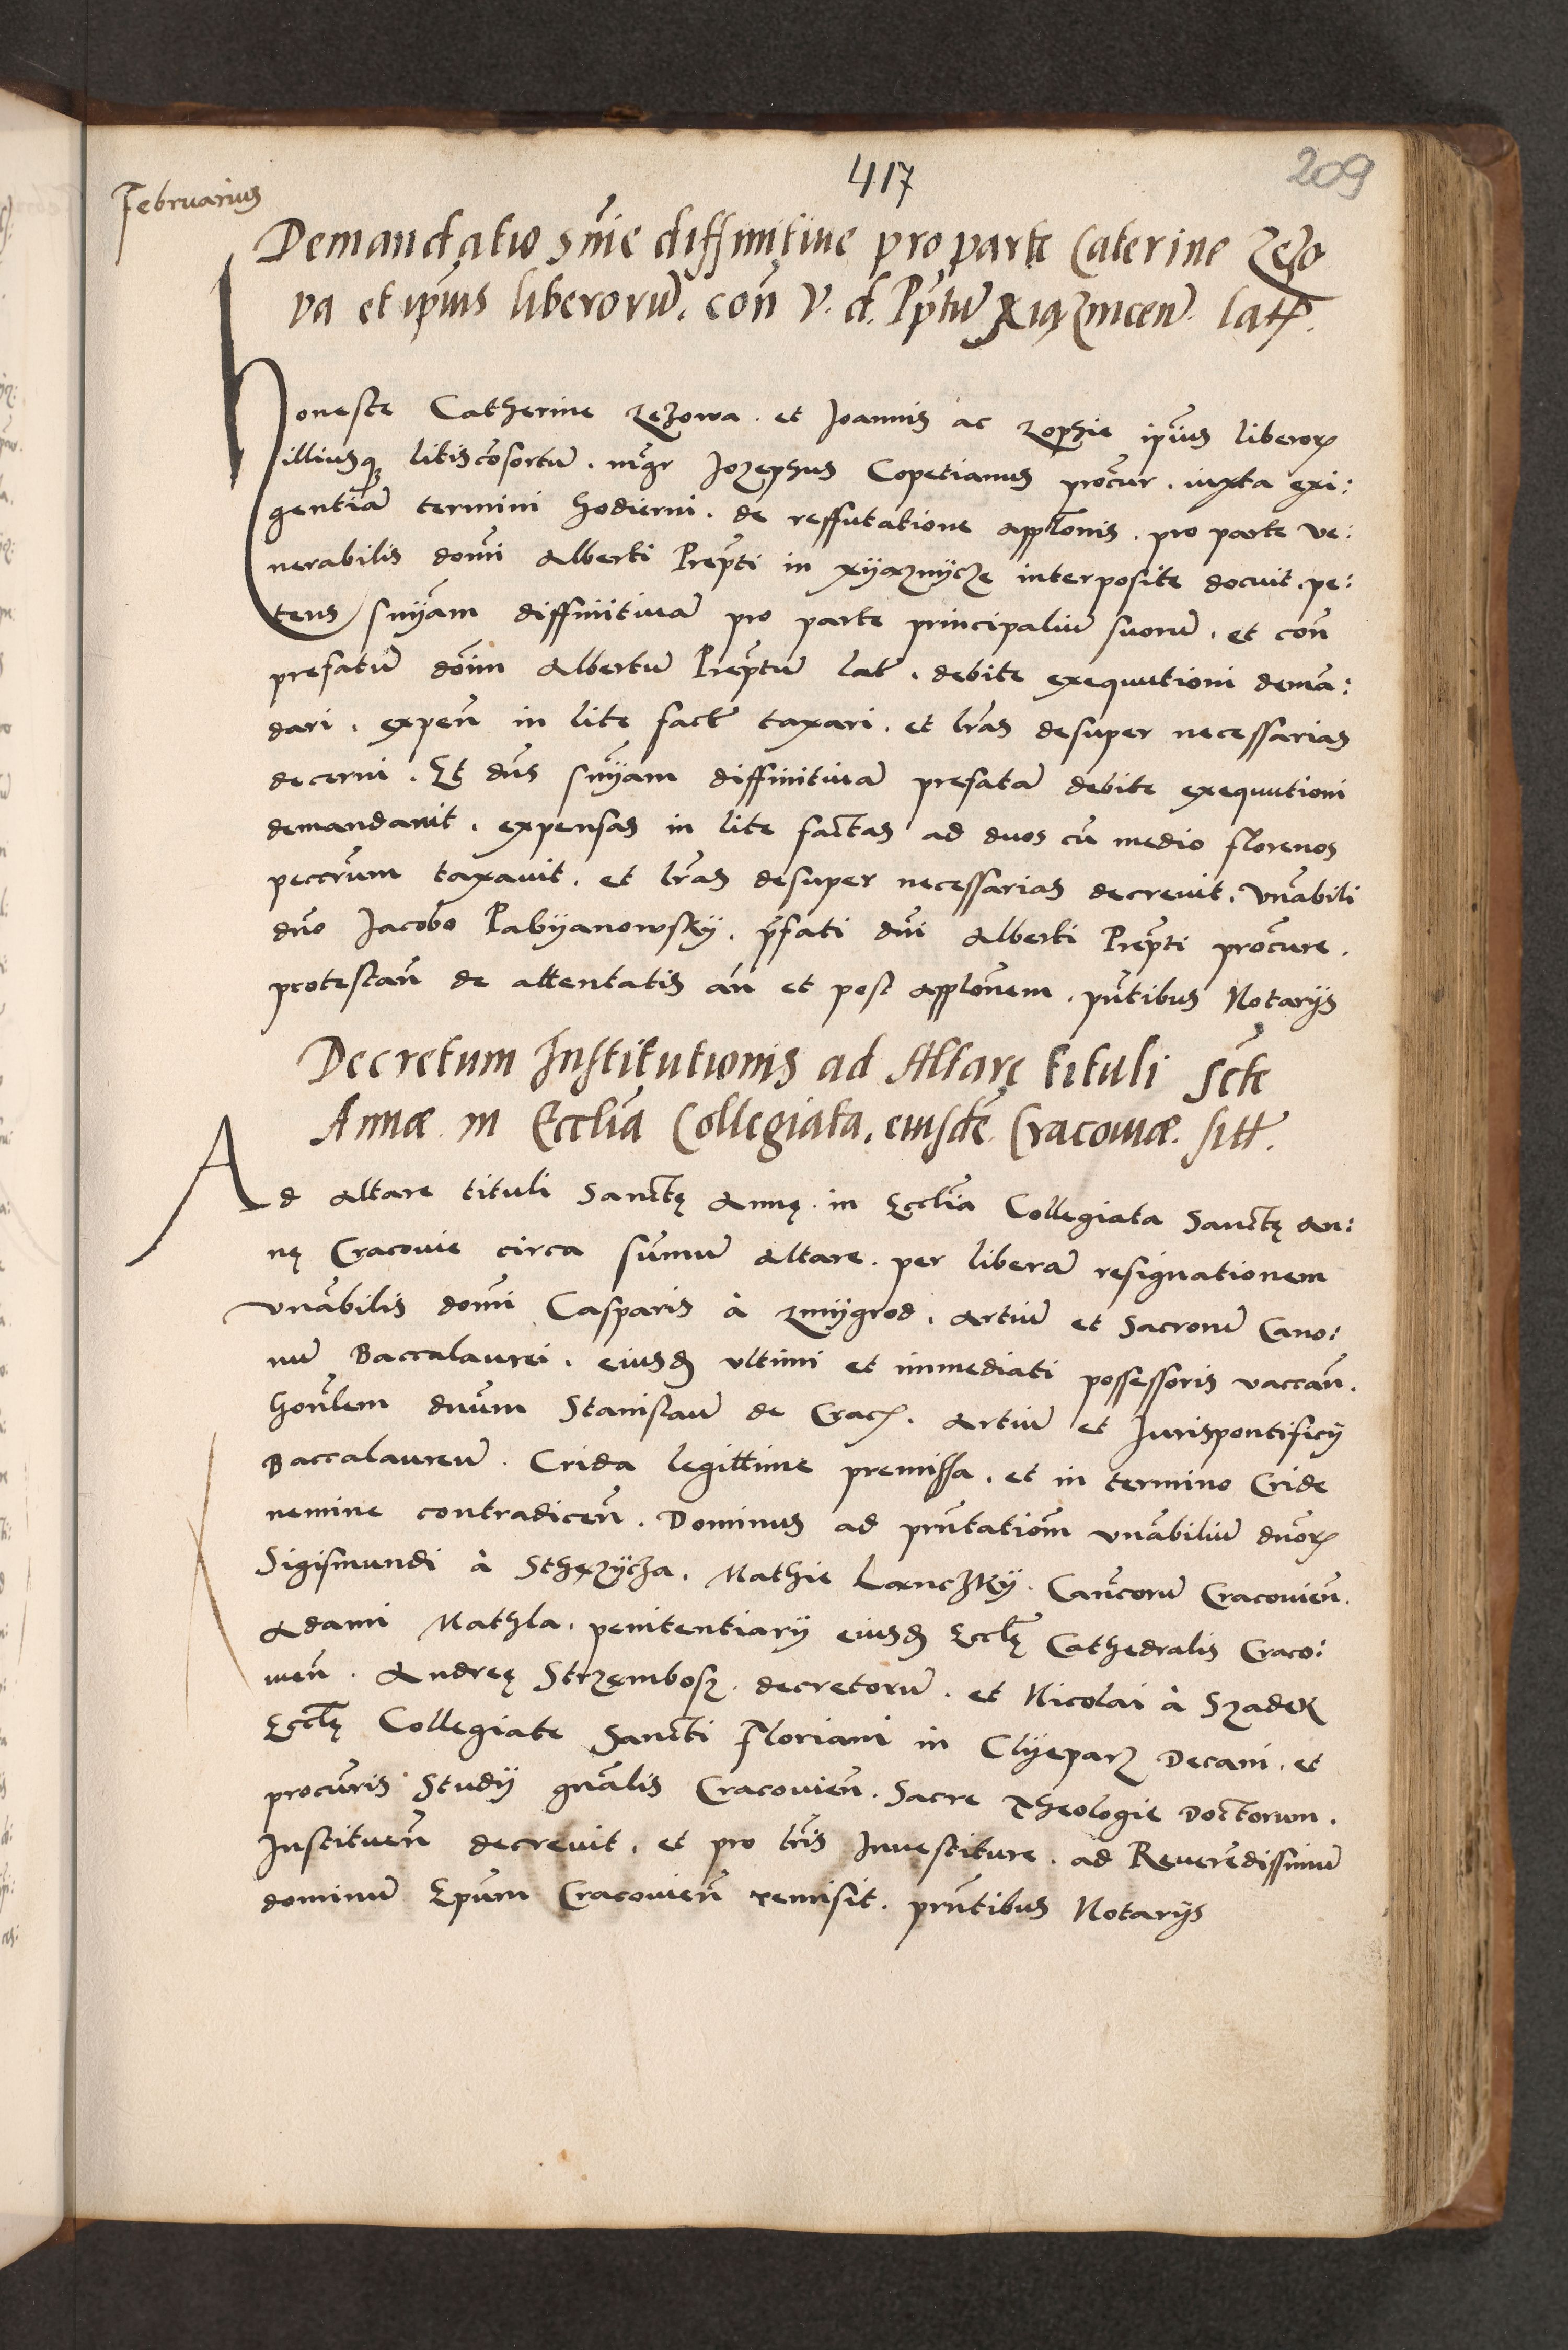 417
209
Februarius
Demandatio sn̄ie diffinitiue pro parte Caterine Zezo
va et ip̄ius liberorū. con̄ V. d. Pp̄tū Xiąznicen̄. latħ.
Honeste Catherine Zezowa. et Joannis ac Zophie ip̄ius liberorꝝ
illiusqꝫ litiscōsortū. mḡr Jozephus Copetianus procūr. iuxta exi:
gentiā termini hodierni. de reffutatione appl̄onis. pro parte ve:
nerabilis domi̅ Alberti Prep̄ti in Xyąznycze interposite docuit. pe:
tens sn̄yam diffinitiuā pro parte principaliū suorū. et con̄
prefatū doīm Albertū Prep̄tū lat̄. debite exequutioni demā:
dari. expen̄ in lite fact̄ taxari. et lr̄as desuper necessarias
decerni. Et dn̄s sn̄yam diffinitiuā prefatā debite exequutioni
demandauit. expensas in lite factas ad duos cū medio florenos
peccr̄um taxauit. et lr̄as desuper necessarias decreuit. vn̄abili
dn̄o Jacobo Pabyanowsky. p̄fati dn̄i Alberti Prep̄ti procūre.
protestan̄ de attentatis an̄ et post appl̄onem. pn̄tibus Notarijs
Decretum Institutionis ad Altarę tituli Sctē
Annæ. in Eccl̄ia Collegiata. eiusdē. Cracouiæ. sitt̄.
Ad Altare tituli Sanctę Annę. in Eccl̄ia Collegiata Sanctę An:
nę Cracouie circa summū Altare. per liberā resignationem
vn̄abilis domi̅ Casparis à Zmygrod. Artiū et Sacrorū Cano:
nū Baccalaurei. eiusđ vltimi et immediati possessoris vaccan̄.
hon̄lem dn̄um Stanislaū de Cracꝫ. Artiū et Jurispontificij
Baccalaureū. Crida legittime premissa. et in termino Cride
nemine contradicen̄. Dominus ad prn̄tatiōm vn̄abiliū dn̄orꝝ
Sigismundi à Sthęzycza. Mathie Lanczky. Can̄corū Cracouien̄.
Adami Mathla. penitentiarij eiusđ Eccl̄ę Cathedralis Craco:
uien̄. Andreę Strzęmbosz. decretorū. et Nicolai à Szadek
Eccl̄ę Collegiate Sancti Floriani in Clyeparz Decani. et
procūris Studij gn̄alis Cracouien̄. Sacre Theologie Doctorum.
Instituen̄ decreuit. et pro lr̄is Inuestiture. ad Reuerendissimū
dominū Ep̄um Cracouien̄ remisit. prn̄tibus Notarijs